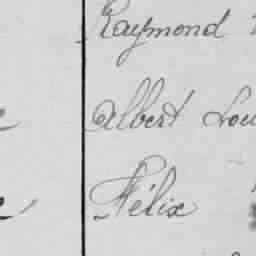 Raymond
Albert Lou
Félix